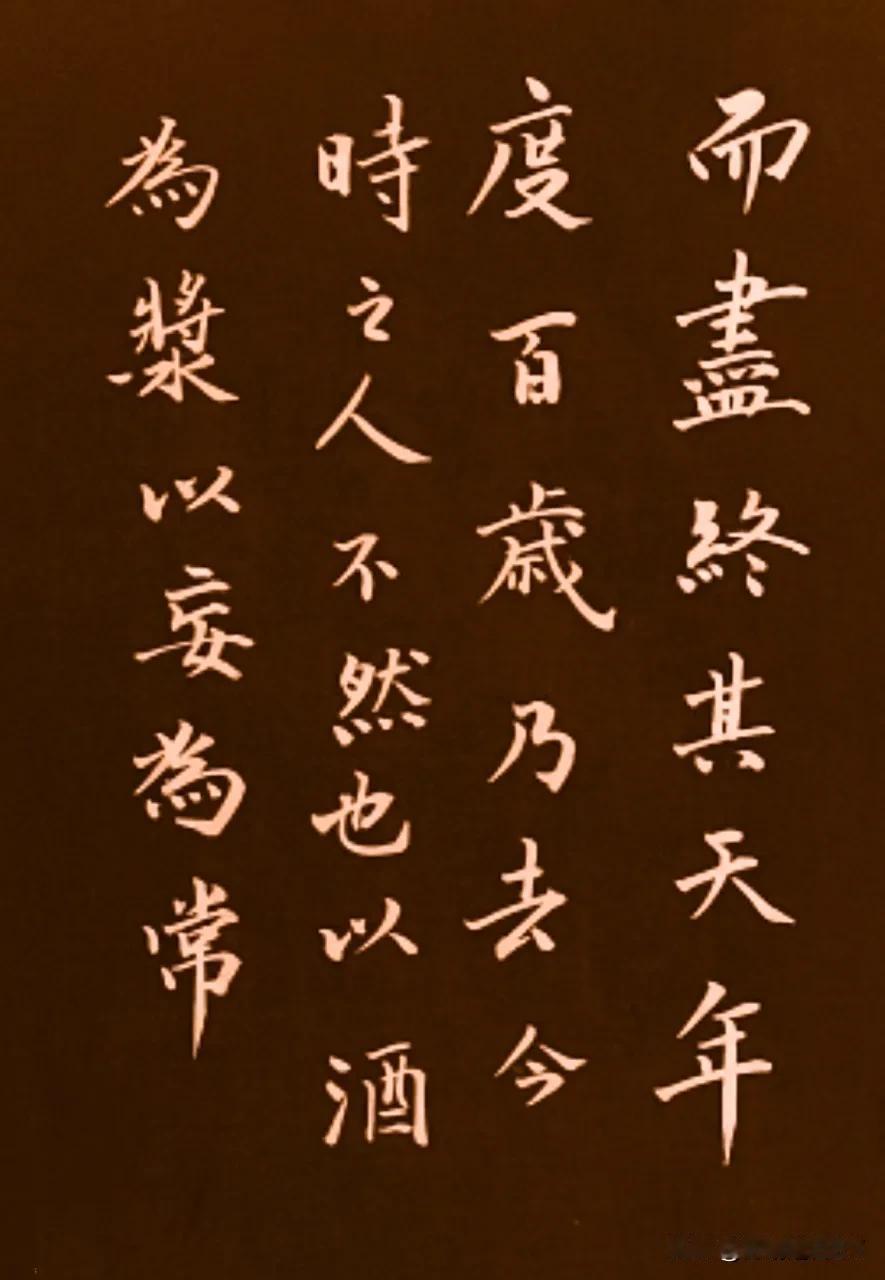 而盡終其天年
度百歲乃去今
時之人不然也以酒
為漿以妄為常